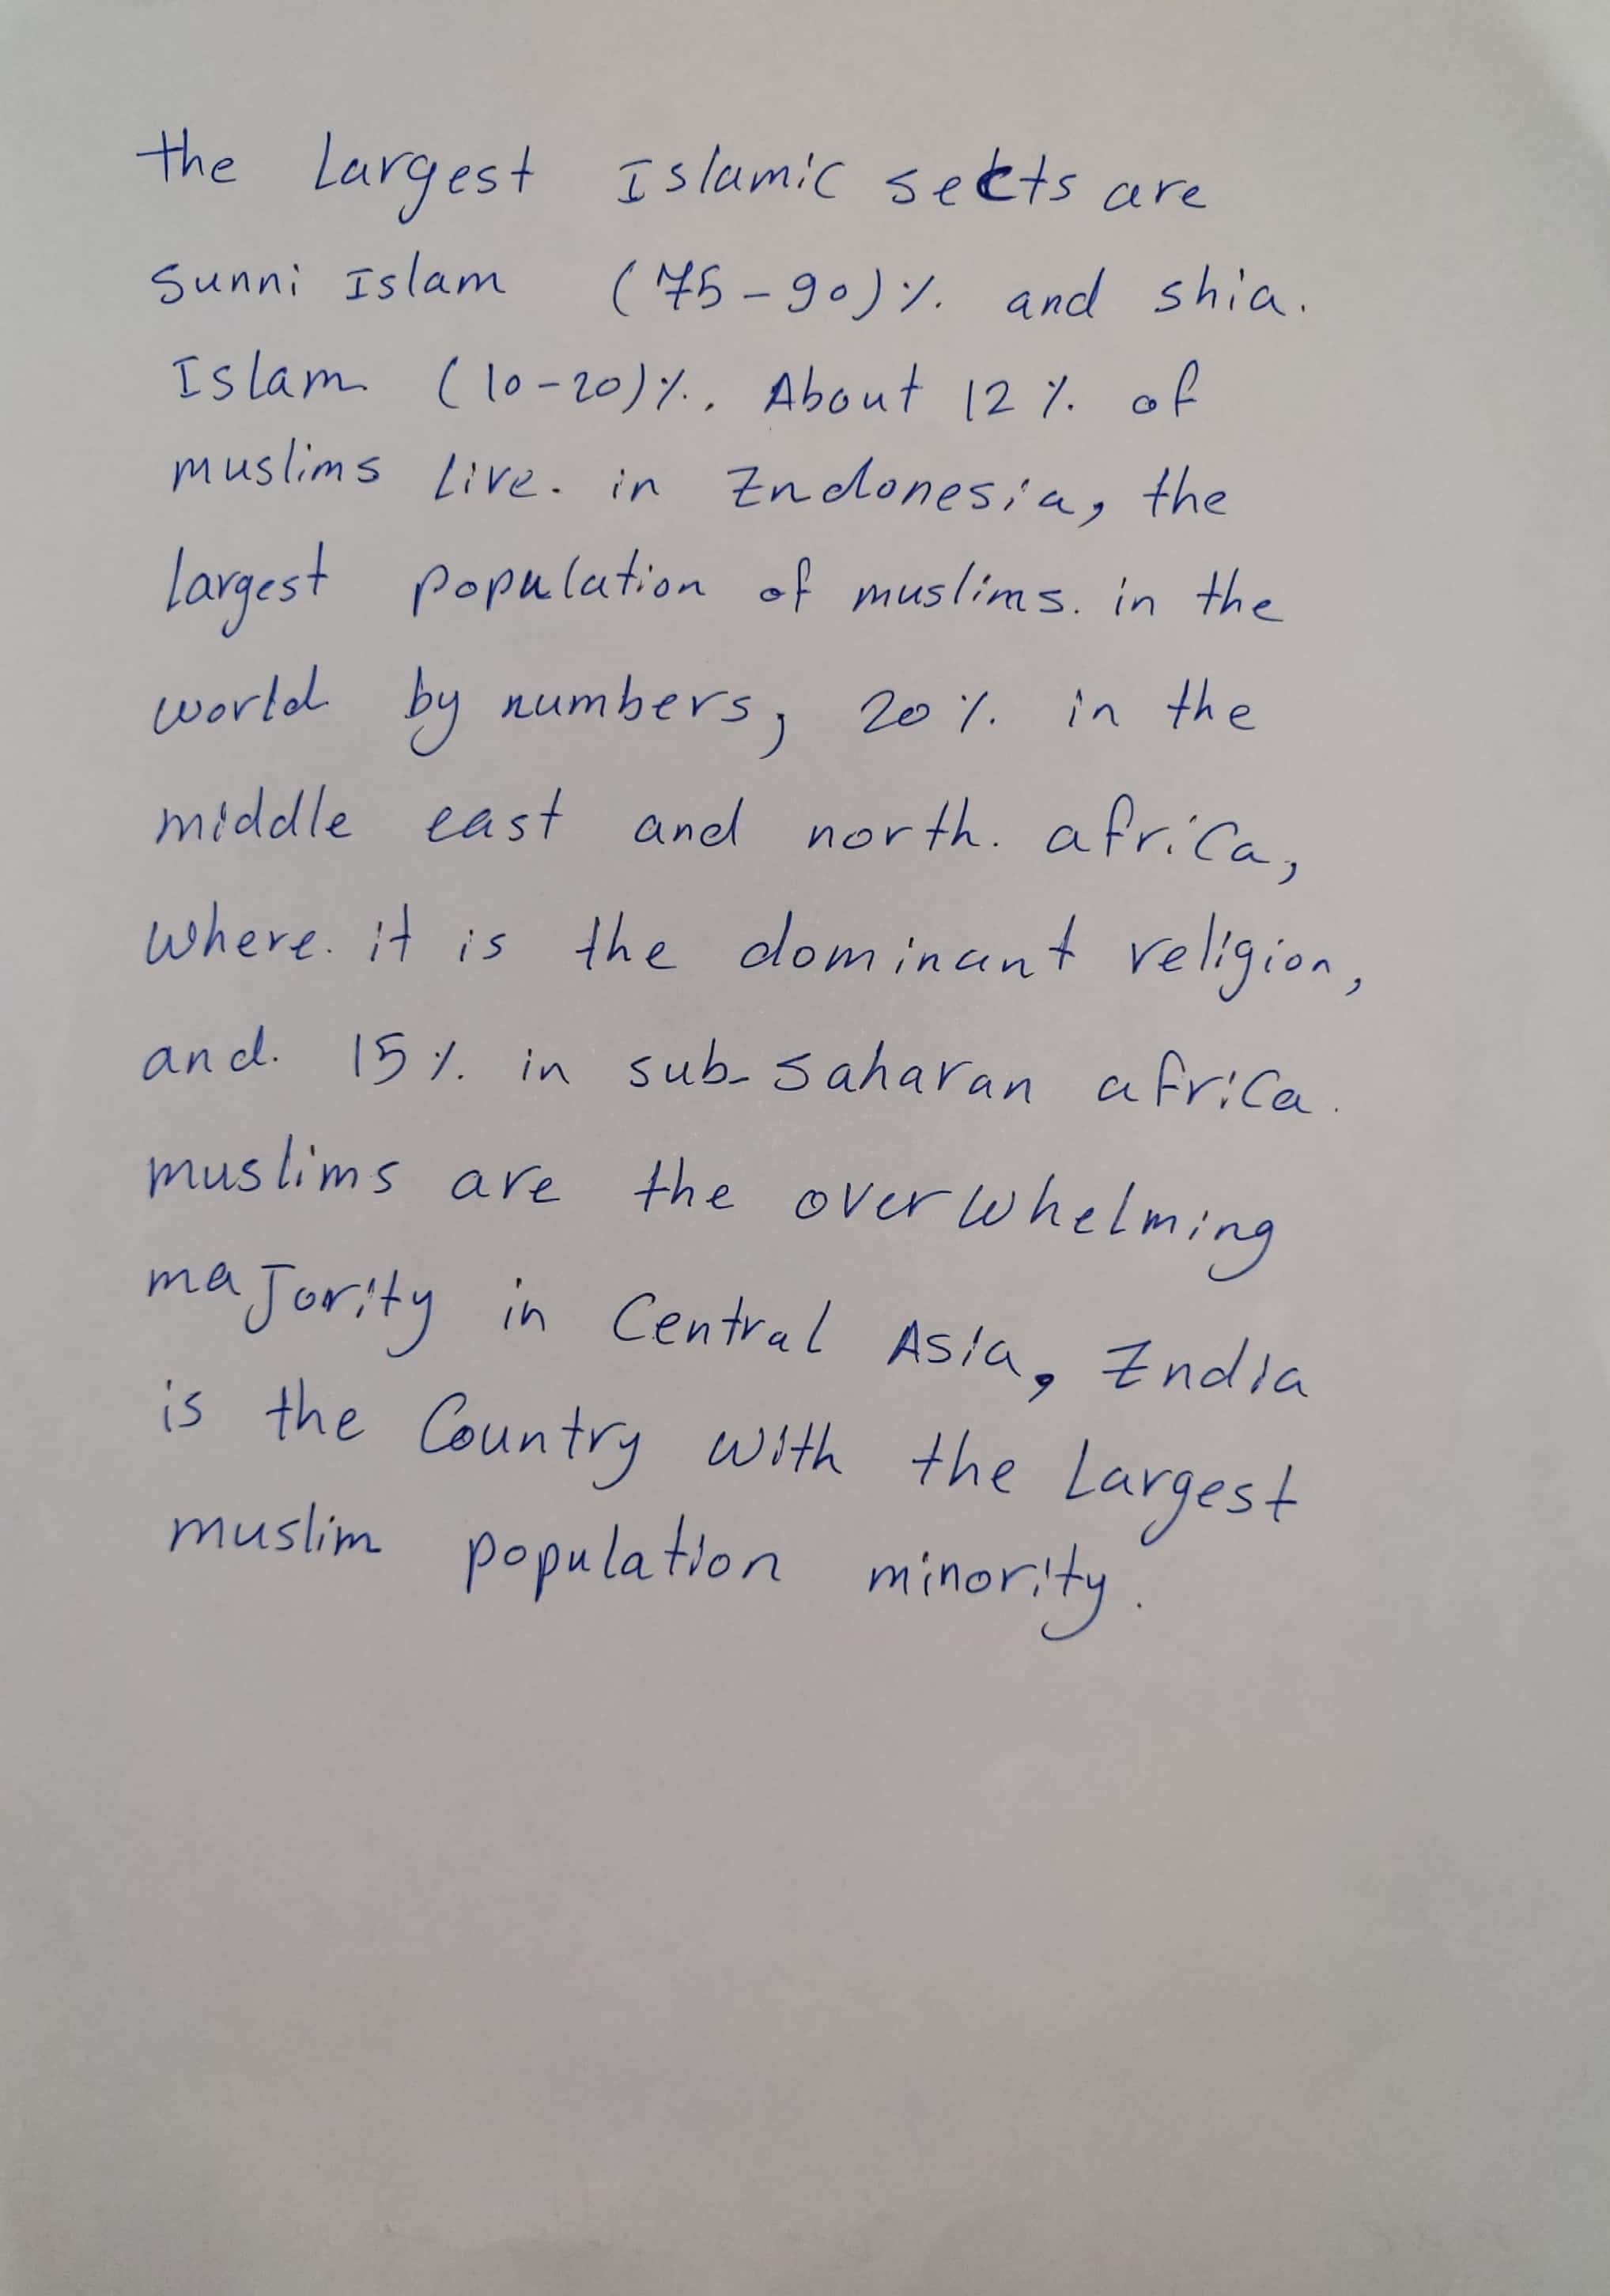 the Largest Islamic sects are
Sunni Islam (75-90)% and shia.
Islam (10-20)%. About 12% of
muslims live. in Indonesia, the
largest population of muslims. in the
world by numbers, 20% in the
middle east and north. africa,
where. it is the dominant religion,
and. 15% in sub-saharan africa.
muslims are the overwhelming
maJority in Central Asia, India
is the Country with the Largest
muslim population minority.